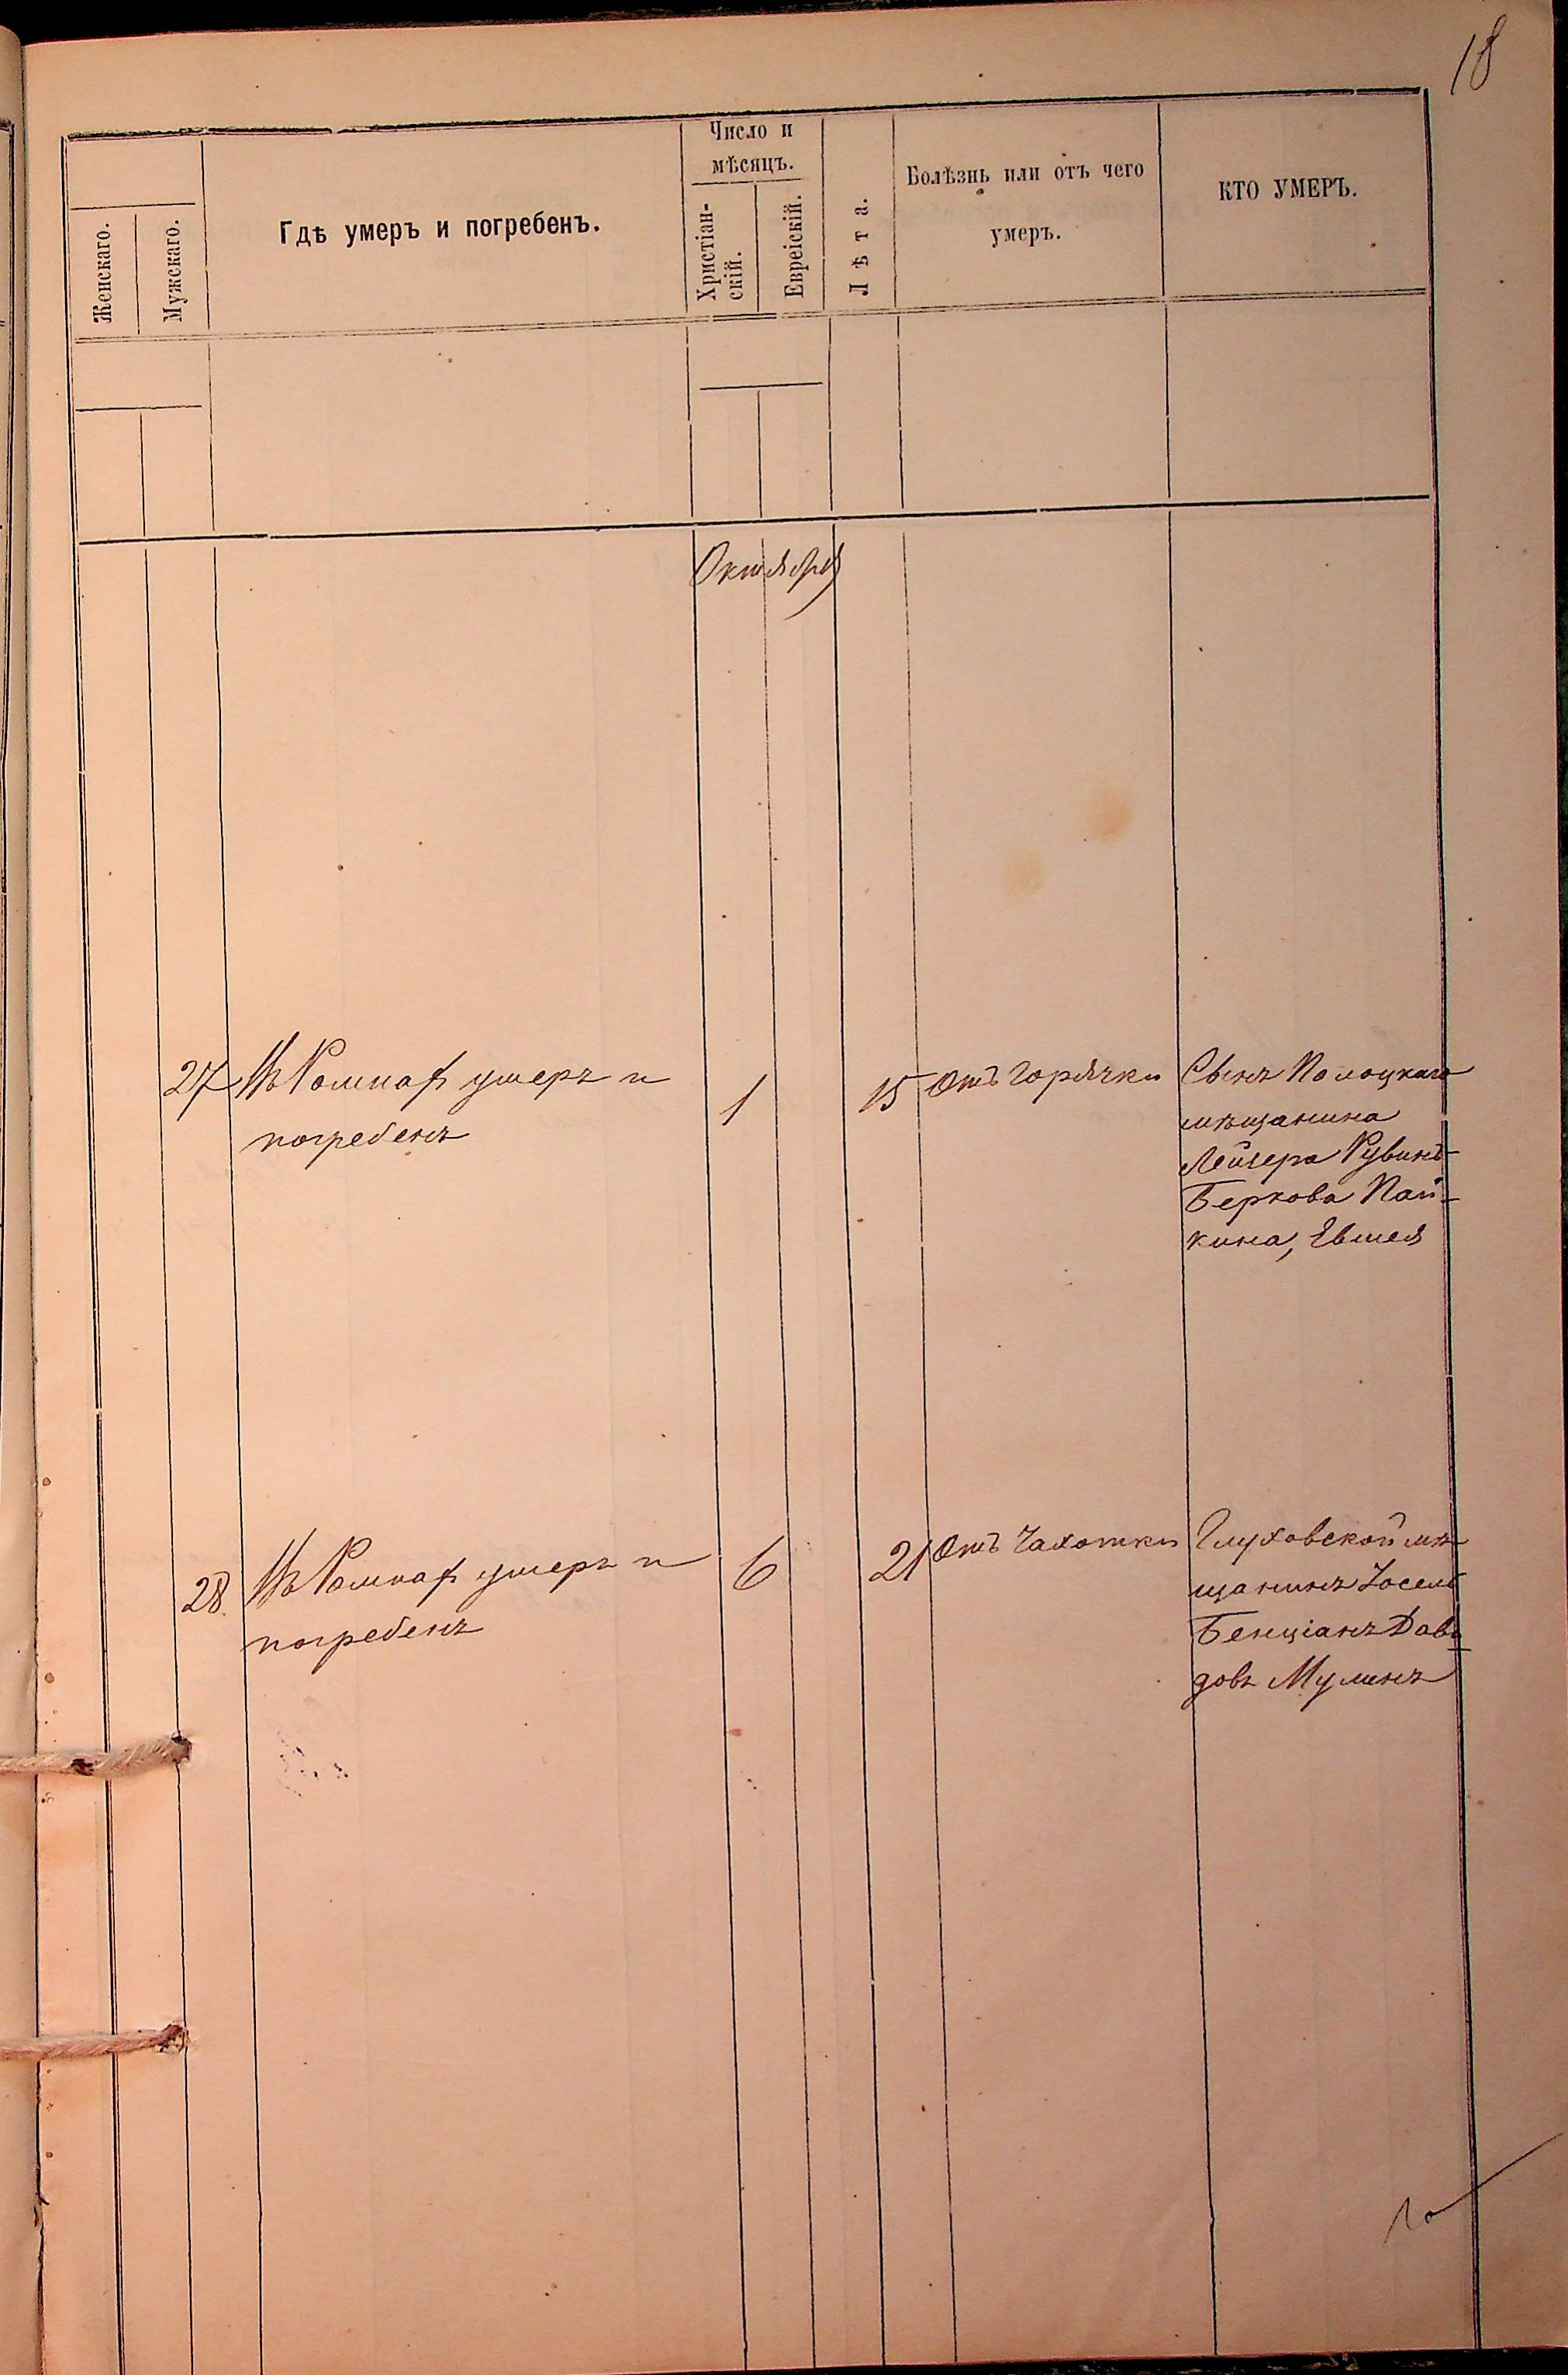 18
Женскаго.
Мужскаго.
Гдѣ умеръ и погребенъ.
Число и
мѣсяцъ.
Христіан-
скій.
Евреіскій.
Лѣта.
Болѣзнь или отъ чего
умеръ.
КТО УМЕРЪ.
Октября
27 Въ Ромнахъ умеръ и
погребенъ
1
15
Отъ горячки
Сынъ Полоцкаго
мѣщанина
Лейзера Рувинъ
Беркова Пай-
кина, Евсея
28. Въ Ромнахъ умеръ и
погребенъ
6
21
Отъ Чахотки
Глуховской мѣ
щанинъ Іосель
Бенціанъ Давы
довъ